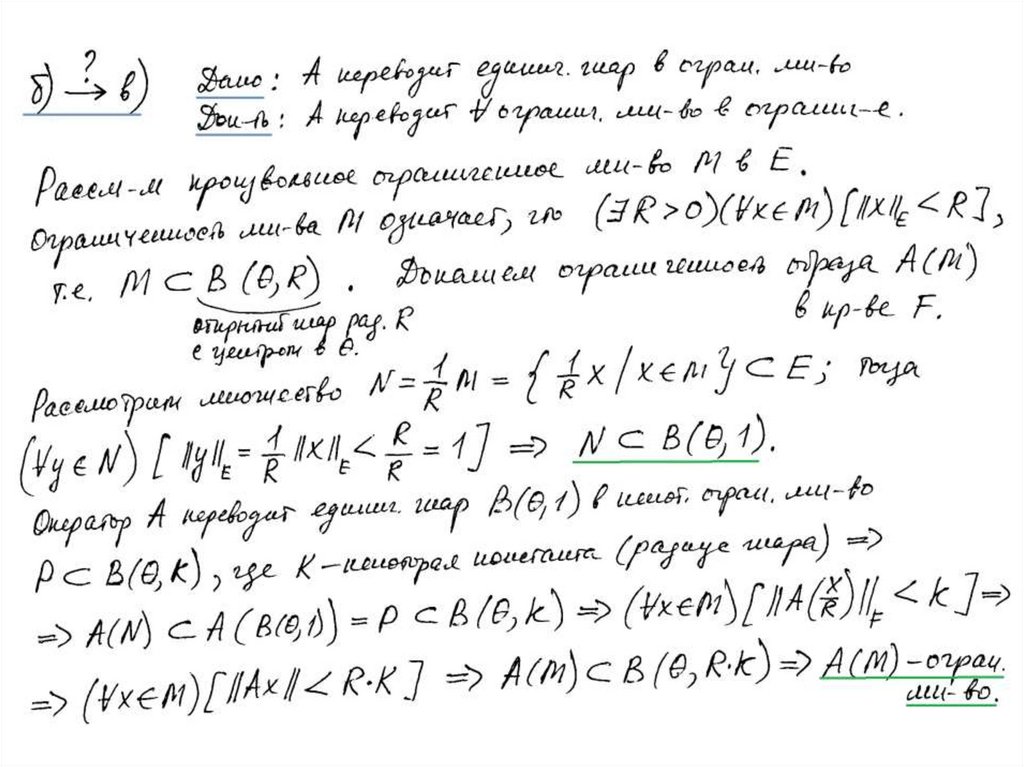 б) →? в) Дано: A переводит единич. шар в огран. мн-во
Док-ть: A переводит ∀ огранич. мн-во в огранич-е.
Рассм-м произвольное ограниченное мн-во M в E.
Ограниченность мн-ва M означает, что (∃R>0)(∀x∈M)[‖x‖_E < R],
т.е. M ⊂ B(θ,R). Докажем ограниченность образа A(M)
открытый шар рад. R
с центром в θ.
в пр-ве F.
Рассмотрим множество N = 1/R M = {1/R x / x∈M} ⊂ E; тогда
(∀y∈N)[‖y‖_E = 1/R ‖x‖_E < R/R = 1] ⇒ N ⊂ B(θ,1).
Оператор A переводит единич. шар B(θ,1) в некот. огран. мн-во
P ⊂ B(θ,K), где K – некоторая константа (радиус шара) ⇒
⇒ A(N) ⊂ A(B(θ,1)) = P ⊂ B(θ,K) ⇒ (∀x∈M)[‖A(x/R)‖_F < K] ⇒
⇒ (∀x∈M)[‖Ax‖ < R·K] ⇒ A(M) ⊂ B(θ,R·K) ⇒ A(M) – огран.
мн-во.